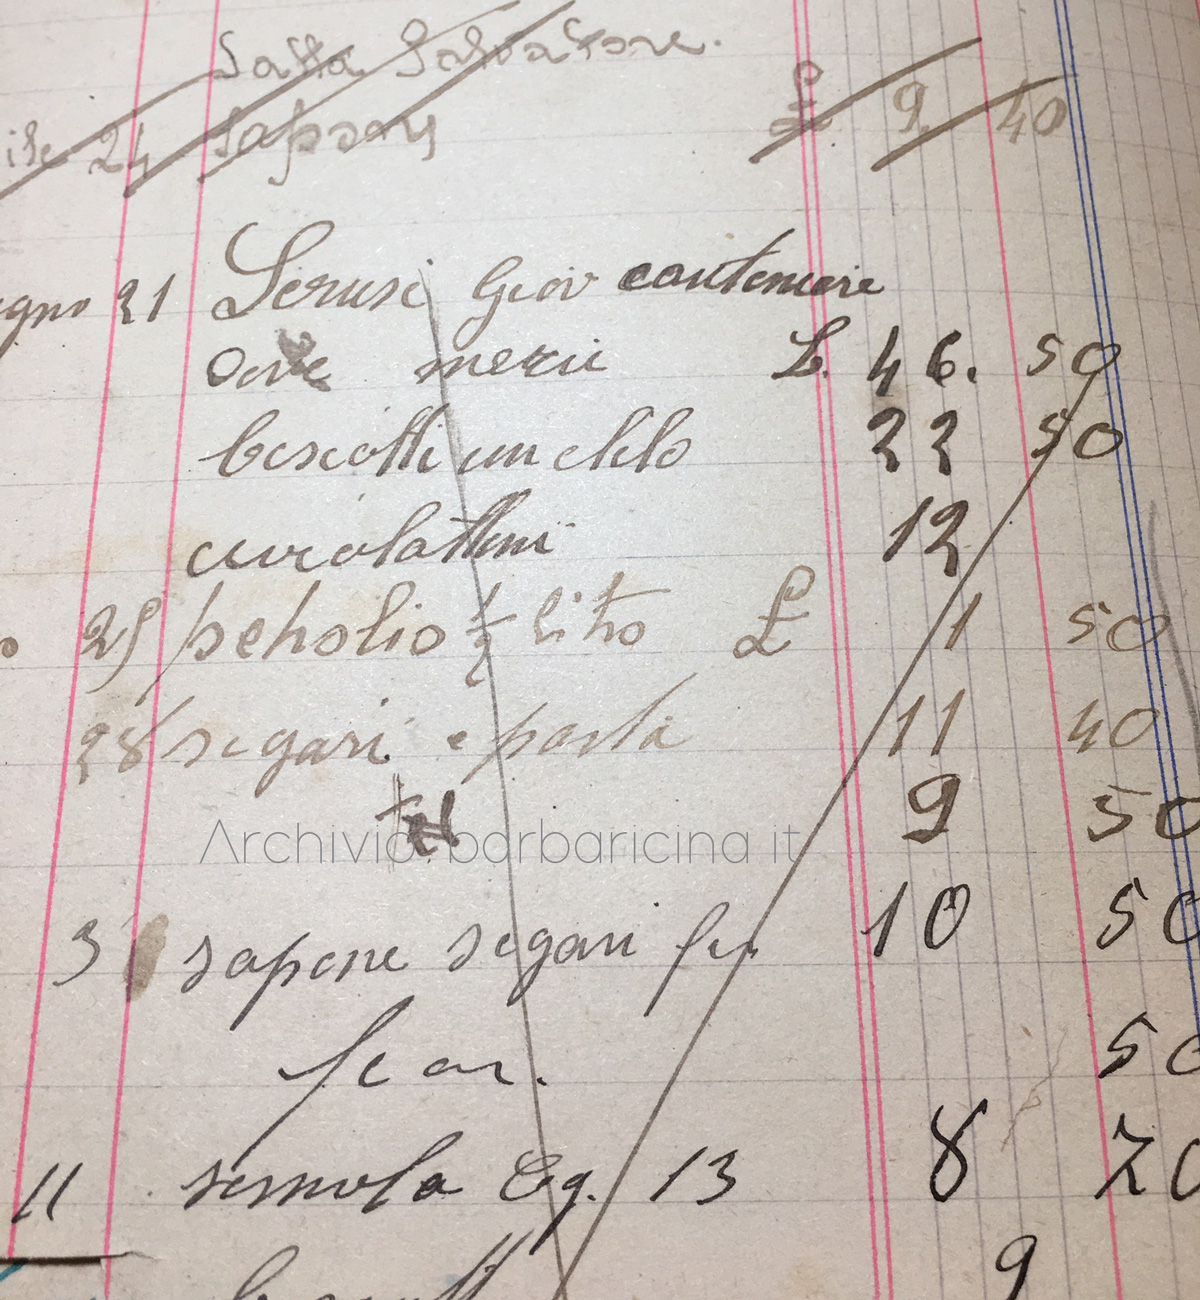 Satta Salvatore.
ile 24 Sapson £ 9. 40
gno 21 Serusi Giov cantoniere
merii L. 46. 50
biscotti un chilo 22 50
12
25 petrolio 1/2 litro £ 1 50
28 segari e pasta 11 40
9 50
Archivio barbaricina it
3 sapone segari 10 50
50
11 semola Cg. 13 8 70
9